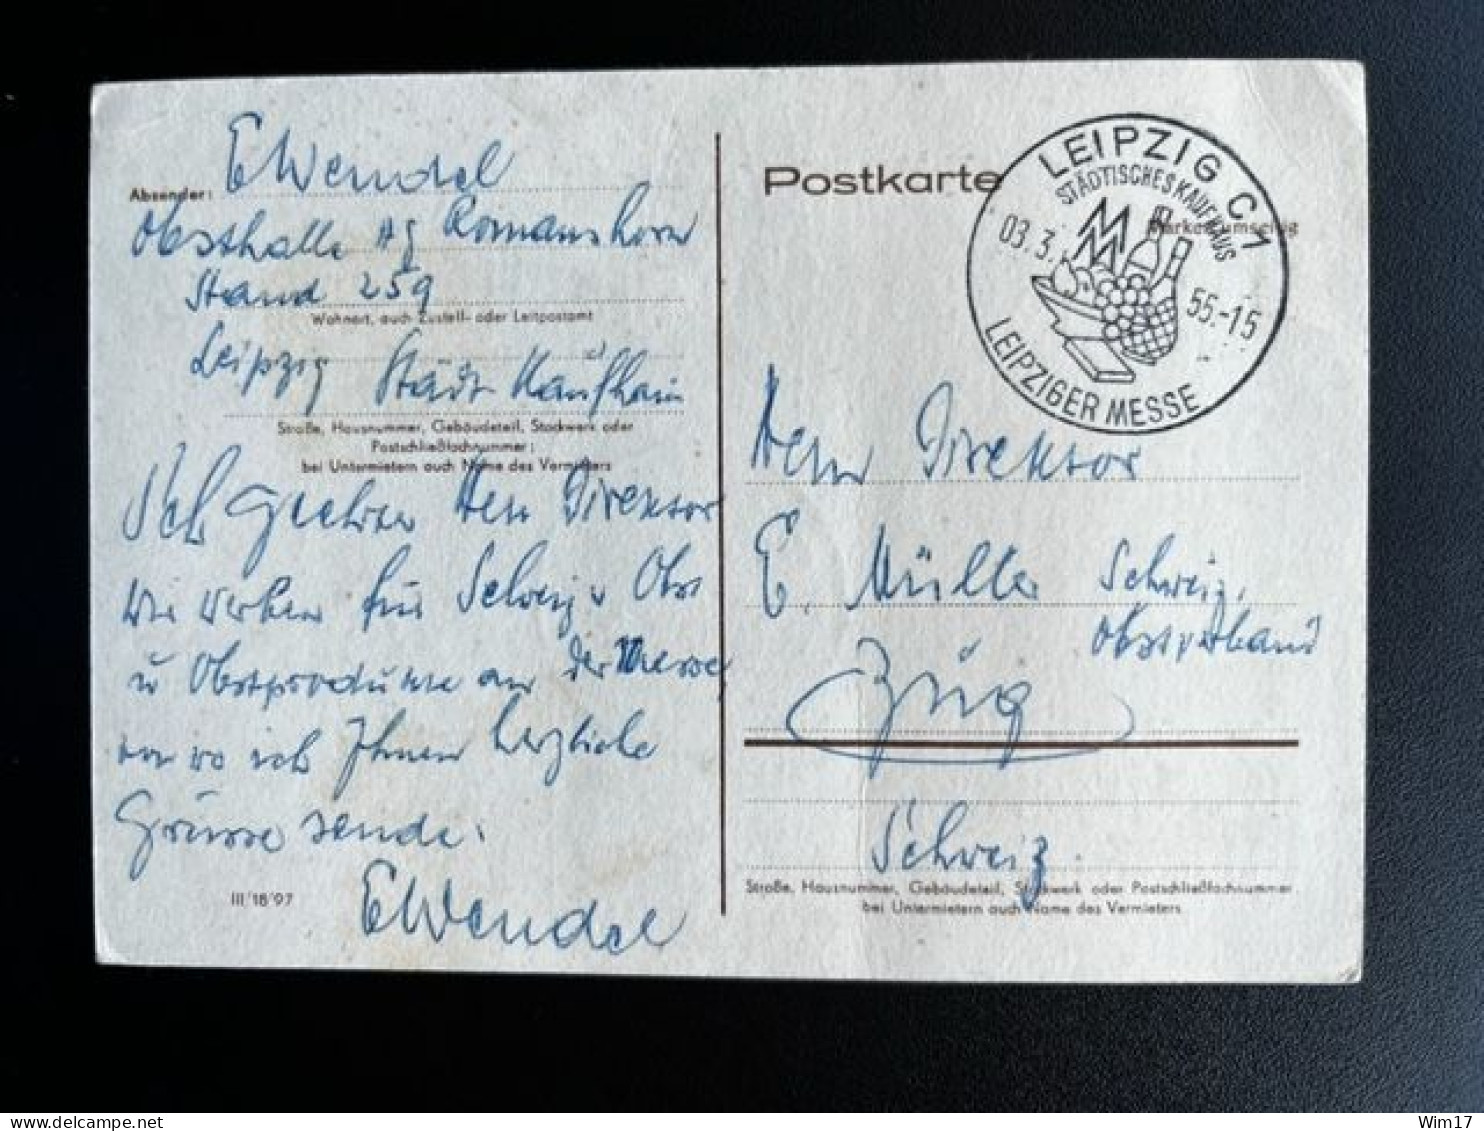 EWendel
Absender:
Obsthalle AG Romanshorn
Stand 259
Wohnort, auch Zustell- oder Leitpostamt
Leipzig Städt Kaufhaus
Straße, Hausnummer, Gebäudeteil, Stockwerk oder
Postschließfachnummer;
bei Untermietern auch Name des Vermieters
Sehr geehrter Herr Direktor
Wir werben für Schweiz. Obst
u Obstprodukte an der Messe
von wo ich Ihnen herzliche
Grüsse sende.
EWendel
III/18/97
Postkarte
LEIPZIG C1
STÄDTISCHES KAUFHAUS
03.3. 55.-15
LEIPZIGER MESSE
Herrn Direktor
E. Müller Schweiz.
Obstverband
Zug
Schweiz.
Straße, Hausnummer, Gebäudeteil, Stockwerk oder Postschließfachnummer
bei Untermietern auch Name des Vermieters
Wim17